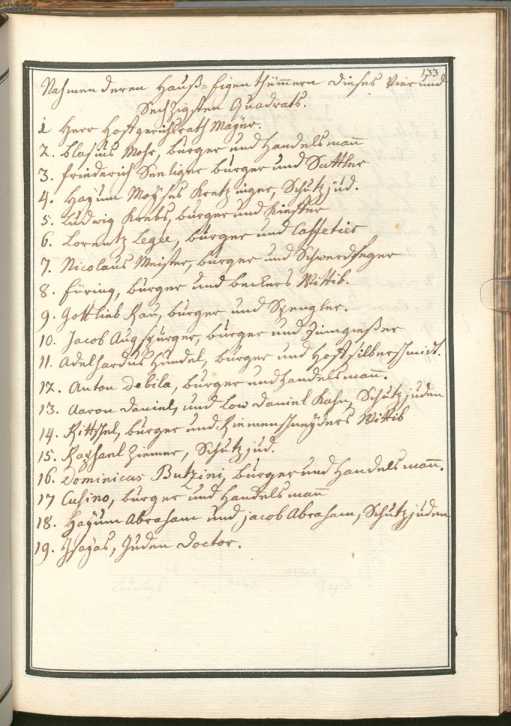 133
Nahmen deren Hauß=Eigenthümmern dieses Vier und
Sechzigsten Quadrats.
1 Herr Hoffgerichtsrath Mayer.
2. Blasius Mohr, burger und Handelsmañ
3. Friederich Seeliger burger und Sattler
4. Hayum Moyses Kretzinger, Schutzjud.
5. Ludwig Krebs, burger und Kieffer
6. Lorentz Legée, burger und Caffetier
7. Nicolaus Meister, burger und Schwerdfeger
8. Füring, burger und beckers Wittib.
9. Gottlieb Rau, burger und Spengler.
10. Jacob Augspurger, burger und Zinngießer
11. Adelhardus Hundel, burger und Hoffsilberschmidt.
12. Anton Debila, burger und Handelsmañ.
13. Aaron Daniel, und Löw Daniel Kahn, Schutzjuden
14. Kittschel, burger und Riemenschneyders Wittib
15. Raphael Ziemer, Schutzjud.
16. Dominicus Butzini, burger und Handelsmañ.
17 Cusino, burger und Handelsmañ
18. Hayum Abraham und jacob Abraham, Schutzjuden
19. Jsayas, Juden Doctor.